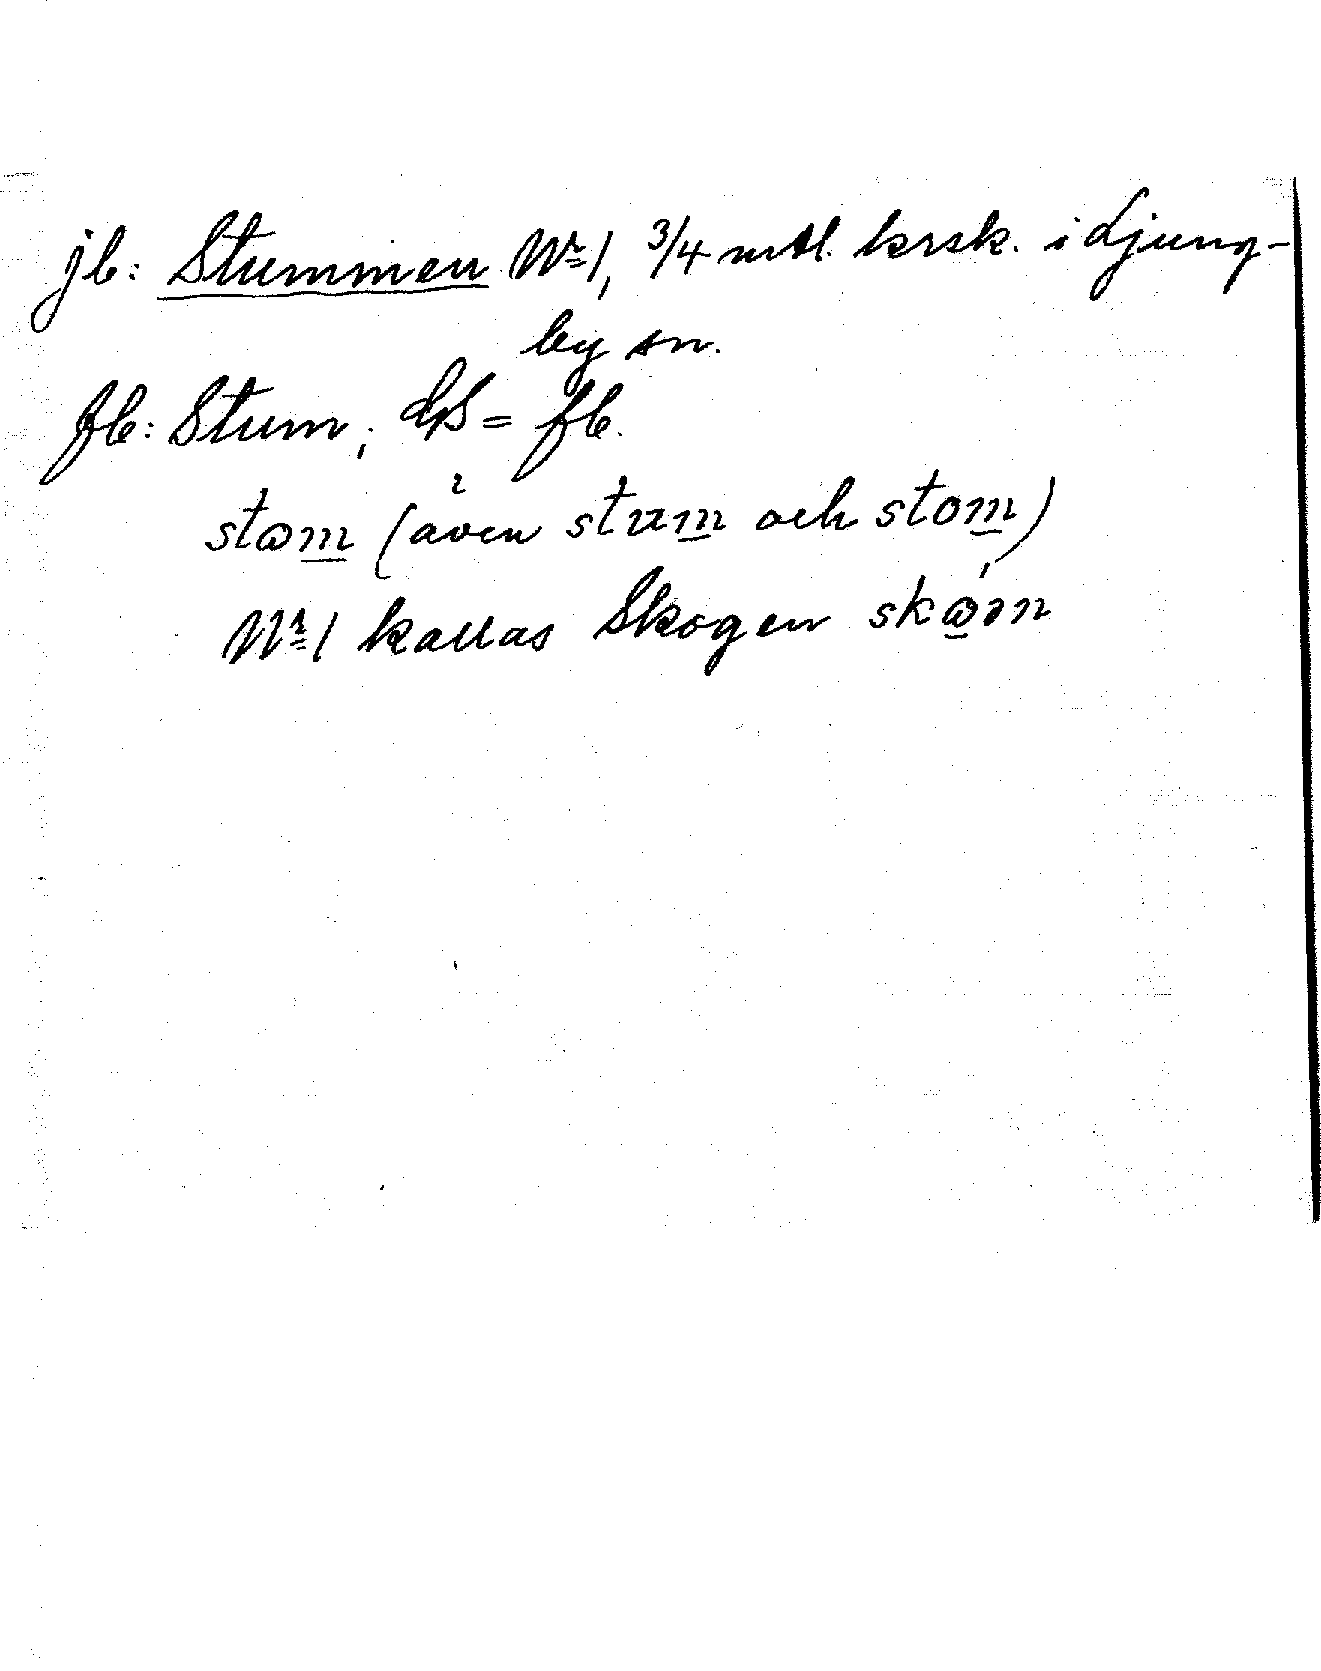 jb: Stummen No 1, 3/4 mtl. krsk. i Ljung-
by sn.
fb: Stum; GS = fb.
stom (även stum och stom)
No 1 kallas Skogen